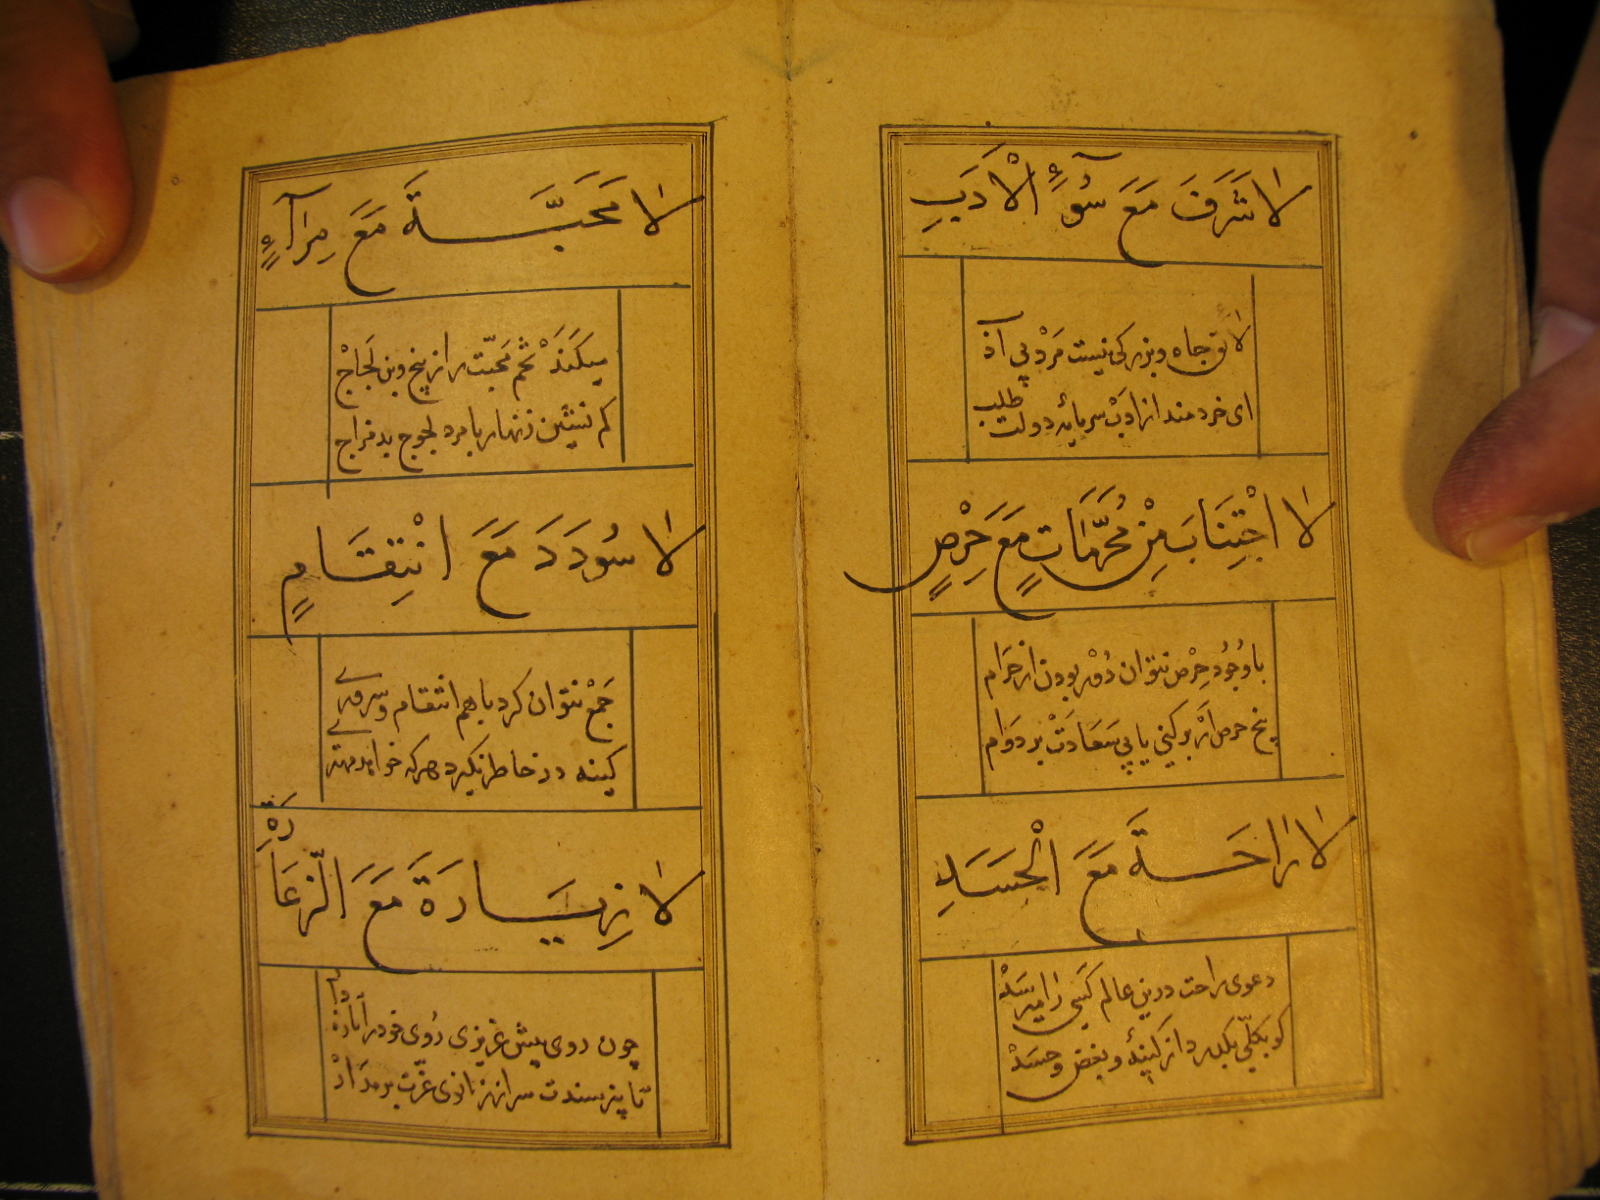 لَا شَرَفَ مَعَ سُوۤءِ الْاَدَبِ
لایق جاه و بزرکی نیست مَرْد بی ادَب
ای خردمند از ادَبْ سرمایهٔ دولت طلب
لَا اجْتِنَابَ مِنْ مُحَرَّمَاتٍ مَعَ حِرْصٍ
با وُجُودِ حِرْص نتوان دُوْر بودن از حَرام
بیخ حرص اَرْ برکنی یابی سَعَادَتْ بر دَوام
لَا رَاحَةَ مَعَ الْحَسَدِ
دعوی راحت درین عالم کَسِی را میرسَدْ
کو بکلّی بکذرد از کینهٔ و بغض و حسَدْ
لَا مَحَبَّةَ مَعَ مِرَآءٍ
میکَنَدْ تُخم مَحبّت را از بیخ و بن لَجاجْ
کم نشین زنهار با مرد لجوج بد مزاج
لَا سُودَدَ مَعَ انْتِقَامٍ
جَمْع نتوان کرد با هم انتقام و سروری
کینه در خاطر نکیرد هرکه خواهد مهتری
لَا زِيَارَةَ مَعَ الزَّعَارَّةِ
چون روی پیش عزیزی خوی خود را
تا پنرسندت سر از زانوی عزّت بر مدار